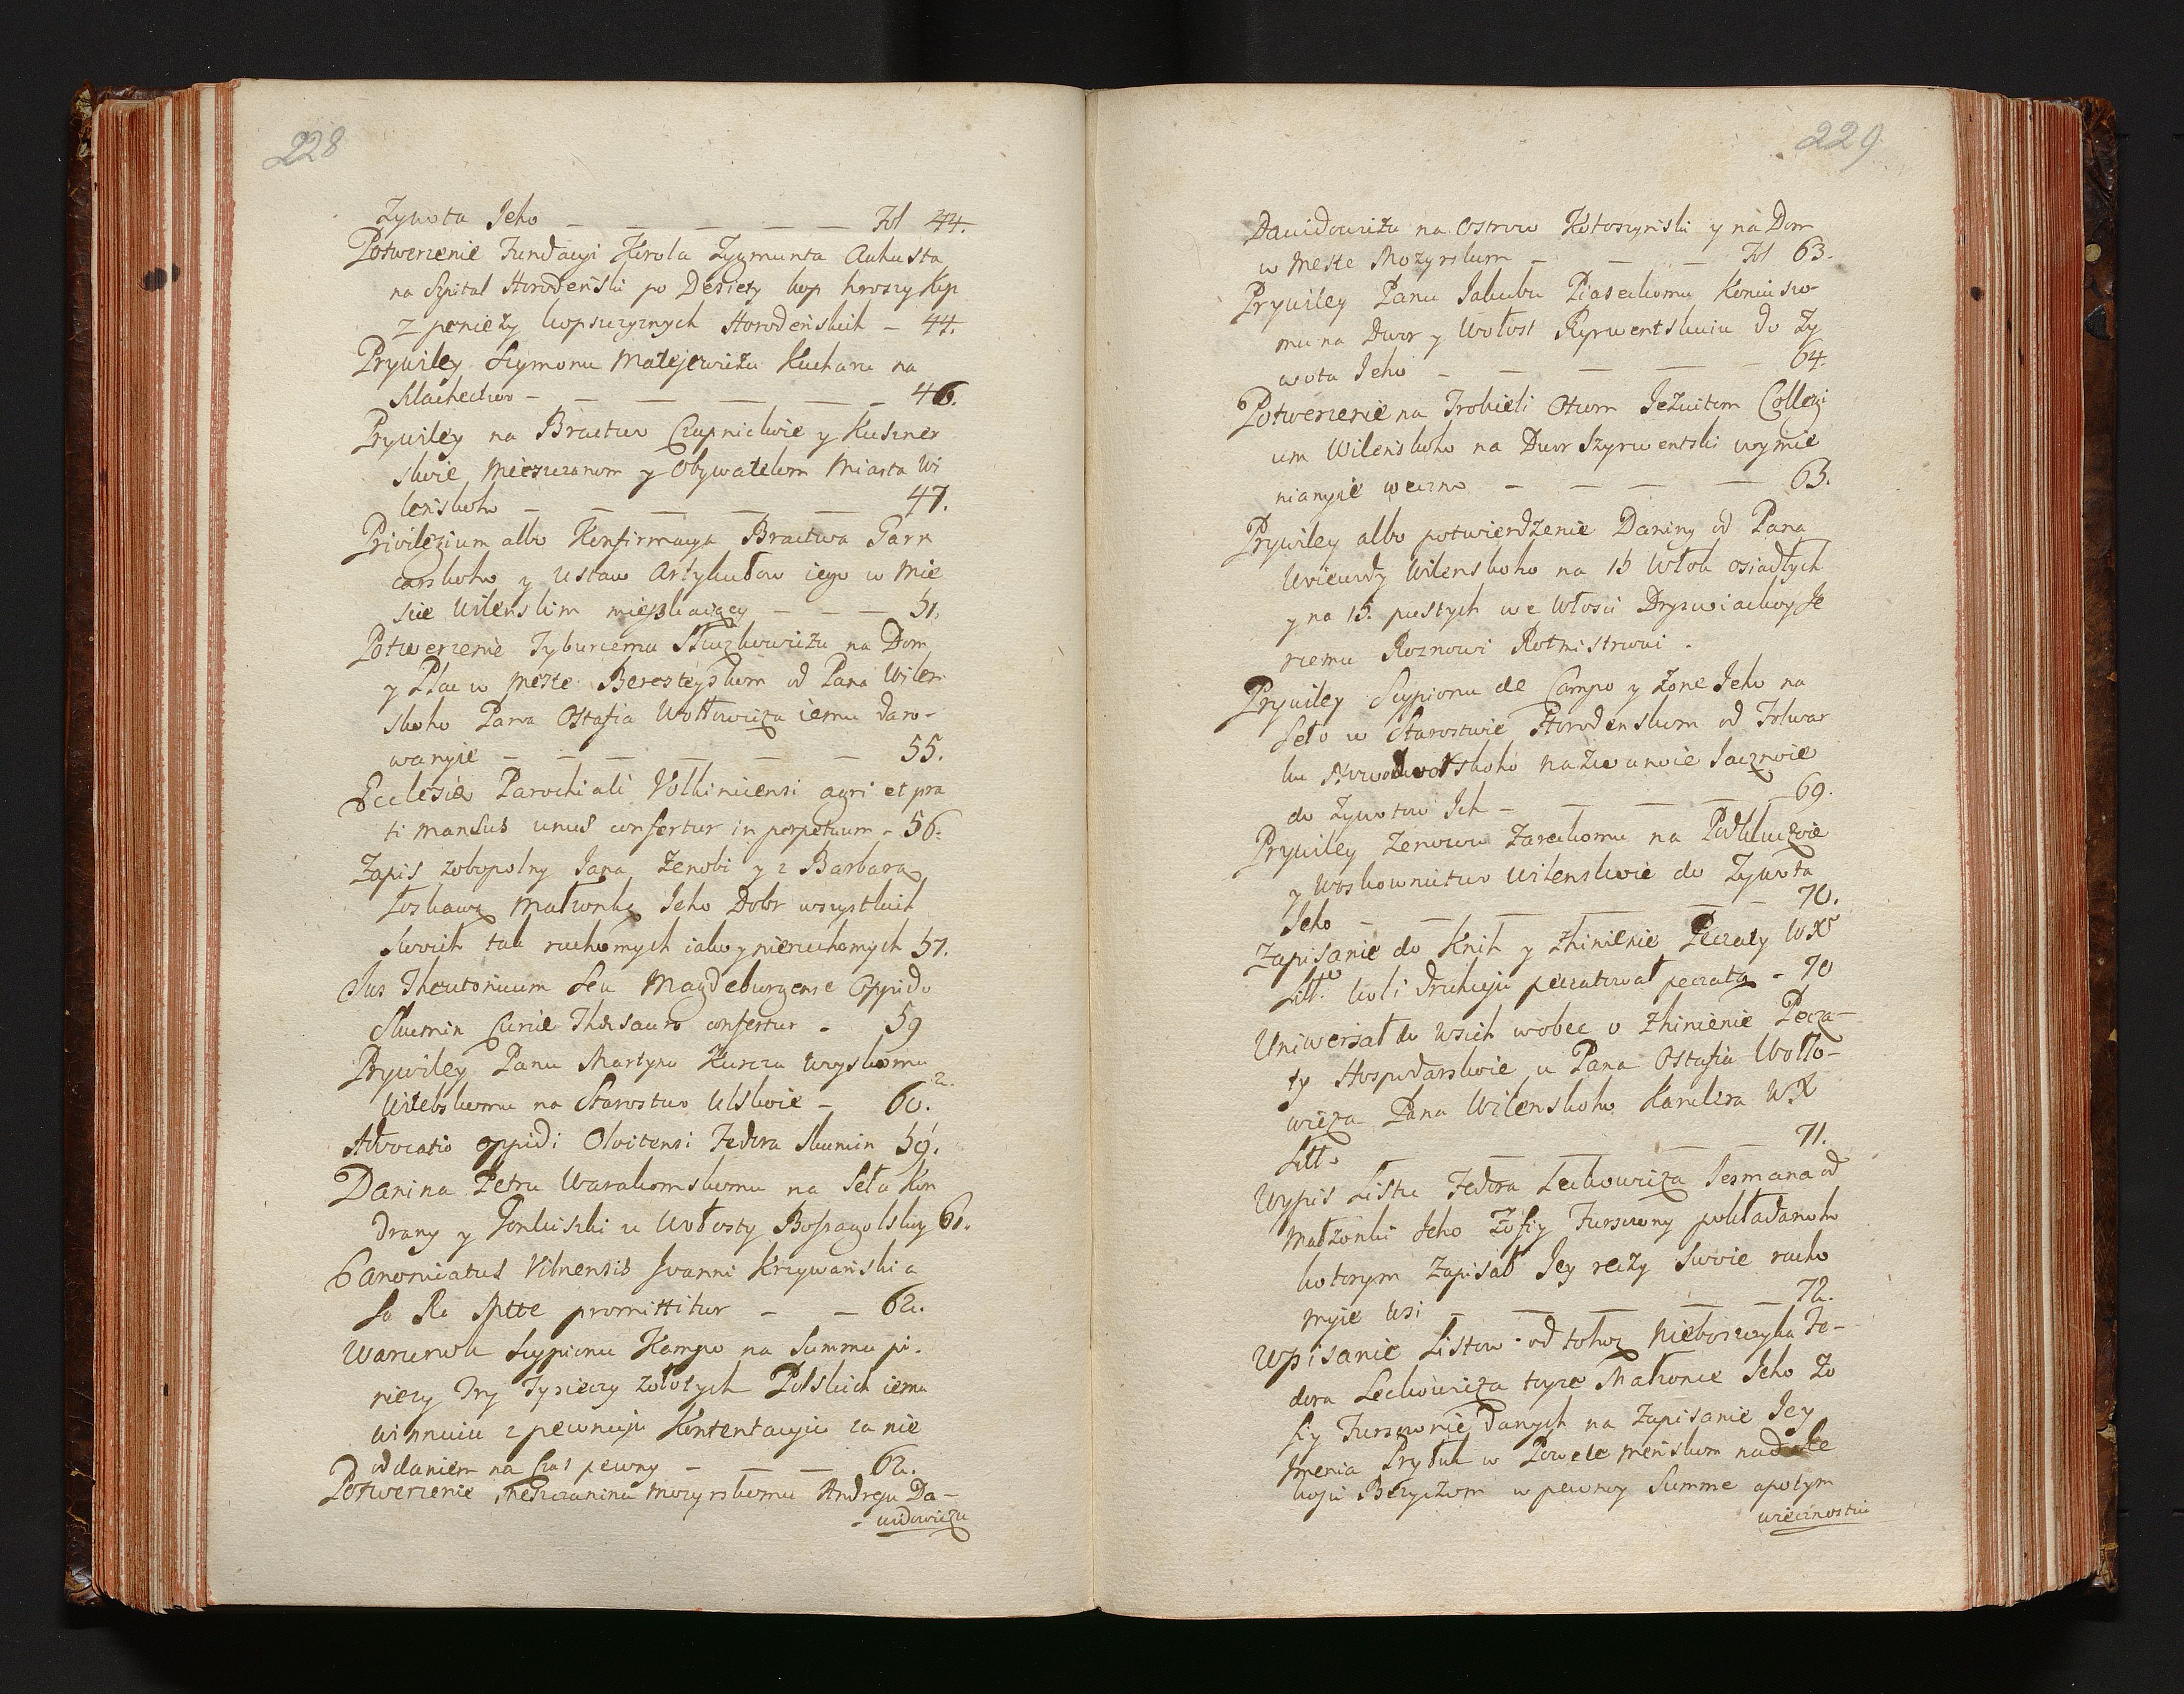 228
Zywota Jeho — — — — — Fol 44.
Potwerzenie Fundacyi Krola Zygmunta Auhusta
na Szpital Horodeński po Desiety kop hroszy Kop
z pieniezy kopszczyznych Horodeńskich — 44.
Prywiley Szymonu Matejewiżu Kucharu na
Szlachectwo — — — — — 46.
Prywiley na Bractwo Czapnickie y Kuszner
skoie Mieszczanom y Obywatelom Miasta Wi
lenskoho — — — — — 47.
Privilegium albo Konfirmacya Bractwa Garn
carskoho y Ustaw Artykułow iego w Mie
scie Wilenskim mieszkaiącey — — — 51.
Potwerzenie Tyburcemu Służkowiżu na Dom
y Plac w Meste Beresteyskom od Pana Wilen
skoho Pana Ostafia Wołłowicza iemu daro-
wanyie — — — — — 55.
Ecclesiæ Parochiali Volkiniensi agri et pra
ti mansus unus confertur in perpetuum - 56.
Zapis zobopolny Jana Zenobi y z Barbarą
Małżonką Jeho Dobr wszystkich
Swoich tak ruchomych iako y nieruchomych 57.
Jus Theutonicum seu Magdeburgense Oppido
Skumin Curiæ Thesauro confertur - 59
Prywiley Panu Martynu Kurczu Woyskomu
Witebskomu na Starostwo Ulskoie — 60.2.
Advocatio oppidi Olvitensi Fedora Skumin 59.
Danina Petru Warakomskomu na Seła Kon
drany y Jonkiszki u Wołosty Bojsagolskoy 61.
Canonicatus Vilnensis Joanni Krzywański a
Sa Ra Mtte promittitur — — 62.
Warunok Scypionu Kampo na Summu pi-
niezy Try Tysieczy Zołotych Polskich iemu
winnuiu z pewnuju Kontentacyiu za nie
oddaniem na Czas pewny — — — 62.
Potwerzenie Meszczaninu Mozyrskomu Andreju Da-
- widowiczu
229
Dawidowiżu na Ostrow Kołoszynski y na Dom
w Meste Mozyrskum — — — Fol 63.
Prywiley Panu Jakubu Piaseckomu Koniuszo-
mu na Dwor y Wołost Szyrwentskuiu do Zy
wota Jeho — — — — — 64.
Potwerzenie na Trobieli Otcom Jezuitom Collegi
um Wilenskoho na Dwor Szyrwentski wymie
nianyie weczno — — — — 63.
Prywiley albo potwierdzenie Daniny od Pana
Woiewody Wilenskoho na 15 Włok osiadłych
y na 15. pustych we Włości Dryswiackoy Je
rzemu Roznowi Rotmistrowi.
Prywiley Scypionu de Campo y Zone Jeho na
Seło w Starostwie Horodenskom od Folwar
ku Nowodworskoho nazwanoie Jacznoie
do Zywotow Ich — — — — 69.
Prywiley Zenowu Zareckomu na Podkluczoie
y Woskownictwo Wilenskoie do Zywota
Jeho — — — — — 70.
Zapisanie do Knih y zhinienie Peczaty WXo
Litto koli druhuju peczatował peczatą - 70
Uniwersał do wsich wobec o zhinienie Pecza-
ty Hospodarskoie u Pana Ostafia Wołło-
wicza Pana Wilenskoho Kanclira WX
Litt. — — — — 71.
Wypis Listu Fedora Leckowicza Tesmana od
Małżonki Jeho Zofiy Fursowny pokładanoho
kotorym zapisał Jey reczy Swoie rucho
myie wsi — — — — — 72.
Wpisanie Listow od tohoz Nieboszczyka Fe-
dora Leckowicza toyze Małżonce Jeho Zo
fiy Fursownie danych na Zapisanie Jey
Imenia Pryłuk w Powete Menskom nad
koju Berycżom w pewnoy Summe apotym
wiecznostiu